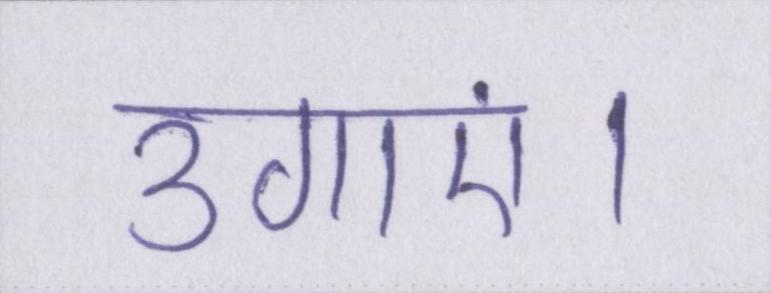 उगाएं।